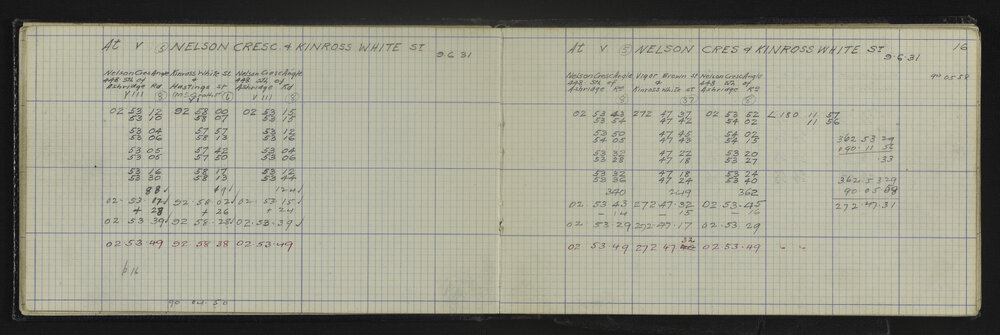 At V ⑧ NELSON CRESC & KINROSS WHITE ST
9.6.31
Nelson Cresc Angle Kinross White St Nelson Cresc Angle
448 Sth of & 448 Sth of
Ashridge Rd Hastings St Ashridge Rd
VIII ⑧ VI ⑥ VIII ⑧
02 53 12 92 58 00 02 53 15
53 10 58 07 53 15
53 04 57 57 53 12
53 06 58 13 53 16
53 05 57 42 53 04
53 05 57 50 53 06
53 16 58 17 53 12
53 30 58 13 53 44
88 49 124
02.53.11 92.58.02 02.53.15
+ 28 + 26 + 24
02 53.39 92.58.28 02.53.39
02.53.49 92 58 38 02.53.49
p16
90 04.50
At V ⑤ NELSON CRES & KINROSS WHITE ST
16
9.6.31
90 05 58
Nelson Cresc Angle Vigor Brown St Nelson Cresc Angle
448 Sth of & 448 Sth of
Ashridge Rd Kinross White St Ashridge Rd
⑧ (37) ⑧
02 53 43 272 47 37 02 53 52 L 180 11 57
53 54 47 42 54 02 11 56
53 50 47 45 54 02
54 05 47 43 54 15
362.53 29
53 32 47 22 53 20
53 28 47 18 53 27
.33
53 32 47 18 53 24
53 36 47 24 53 40
362.53.29
340 249 362
90 05 58
02 53 43 272.47.32 02 53.45
272 47.31
- 14 - 15 - 16
02 53.29 272.47.17 02 53 29
32
02 53.49 272 47 02 53.49 " "